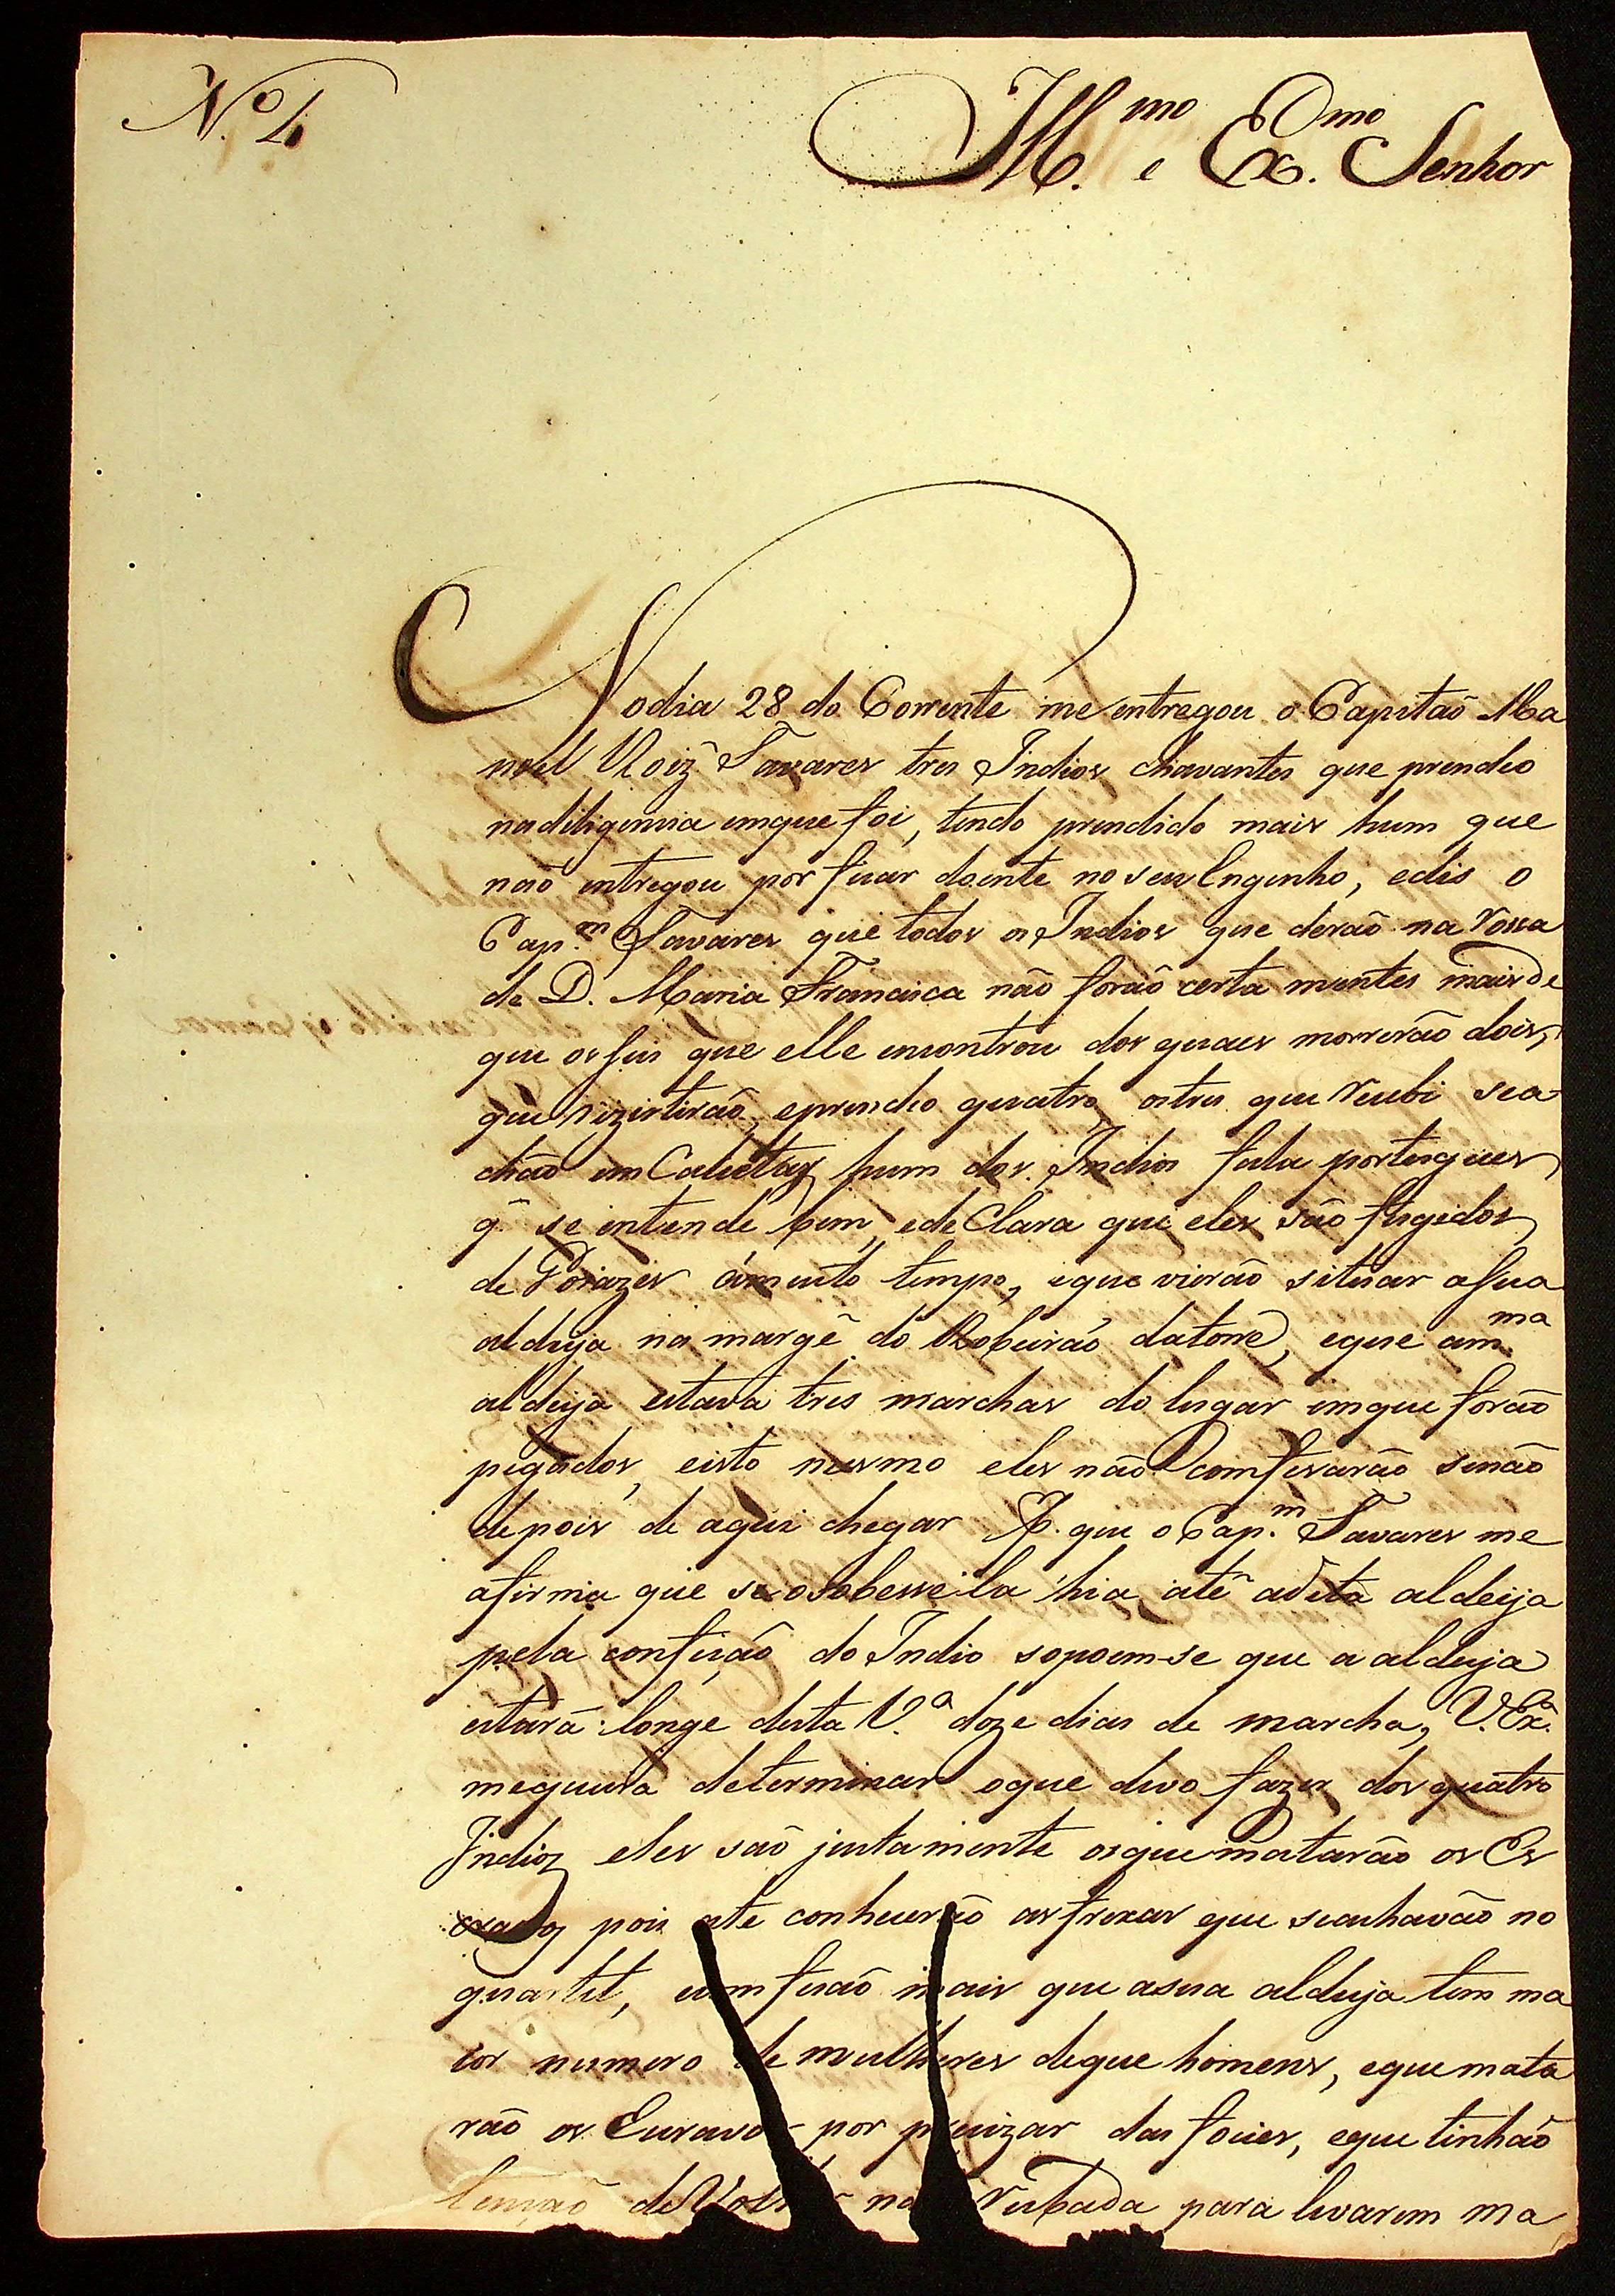 N.º 4
Ill.mo e Ex.mo Senhor
No dia 28 do Corrente me entregou o Capitaõ Ma
noel Roiz Tavares tres Indios chavantes que prendeo
nadiligencia emque foi, tendo prendido mais hum que
naõ entregou por ficar doente no seu Engenho, edis o
Cap.m Tavares que todos os Indios que deraõ na rossa
de D. Maria Francisca não foraõ certa mentes mais de
que os seis que elle encontrou dos quaes morreraõ dois,
que rizistiraõ, eprendeo quatro, ostres que recebi sea-
chaõ em Calcetas, hum dos Indios fala portugues
q. se entende bem, ede Clara que eles saõ fugidos
de Goiazes ámuito tempo, eque vieraõ situar asua
aldeija na margẽ do Robeiraõ datorre, eque am.ma
aldeija estava tres marchas do lugar emque foraõ
pegados, eisto mesmo eles não comfesaraõ senaõ
depois de aqui chegar P. que o Cap.m Tavares me
afirma que se osobesse ela hia atê adita aldeija
pela confição do Indio sopoem-se que a aldeija
estará longe desta V.ª doze dias de marcha, V. Ex.ª
mequeira determinar oque devo fazer dos quatro
Indioz eles saõ justamente osquematarão os Es
cravoz pois ate conhecerão as frexas que seachavaõ no
quartel, comfesaõ mais que asua aldeija tem ma
ior numero de mulheres deque homens, eque mata
raõ os Escravos por precizar das foices, eque tinhaõ
tençaõ de Vol na rusada para levarem ma